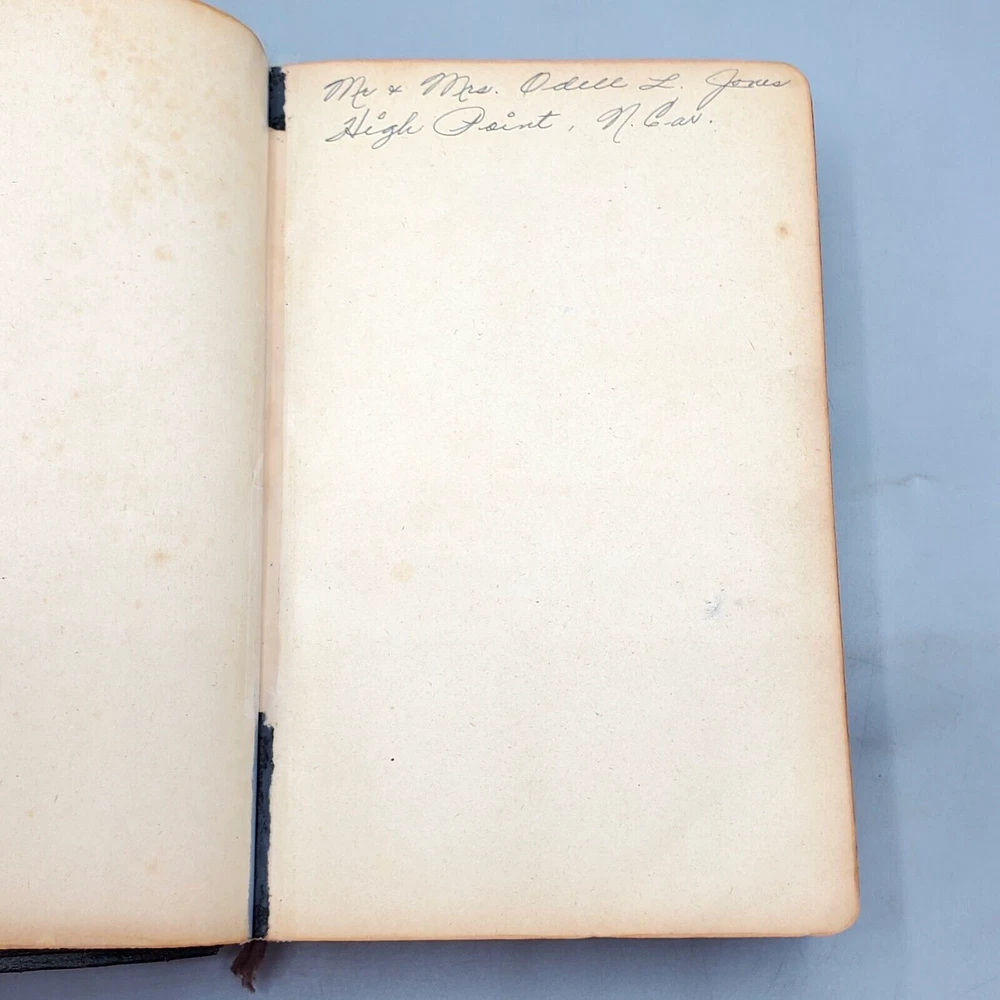 Mr & Mrs. Odell L. Jones
High Point, N. Car.